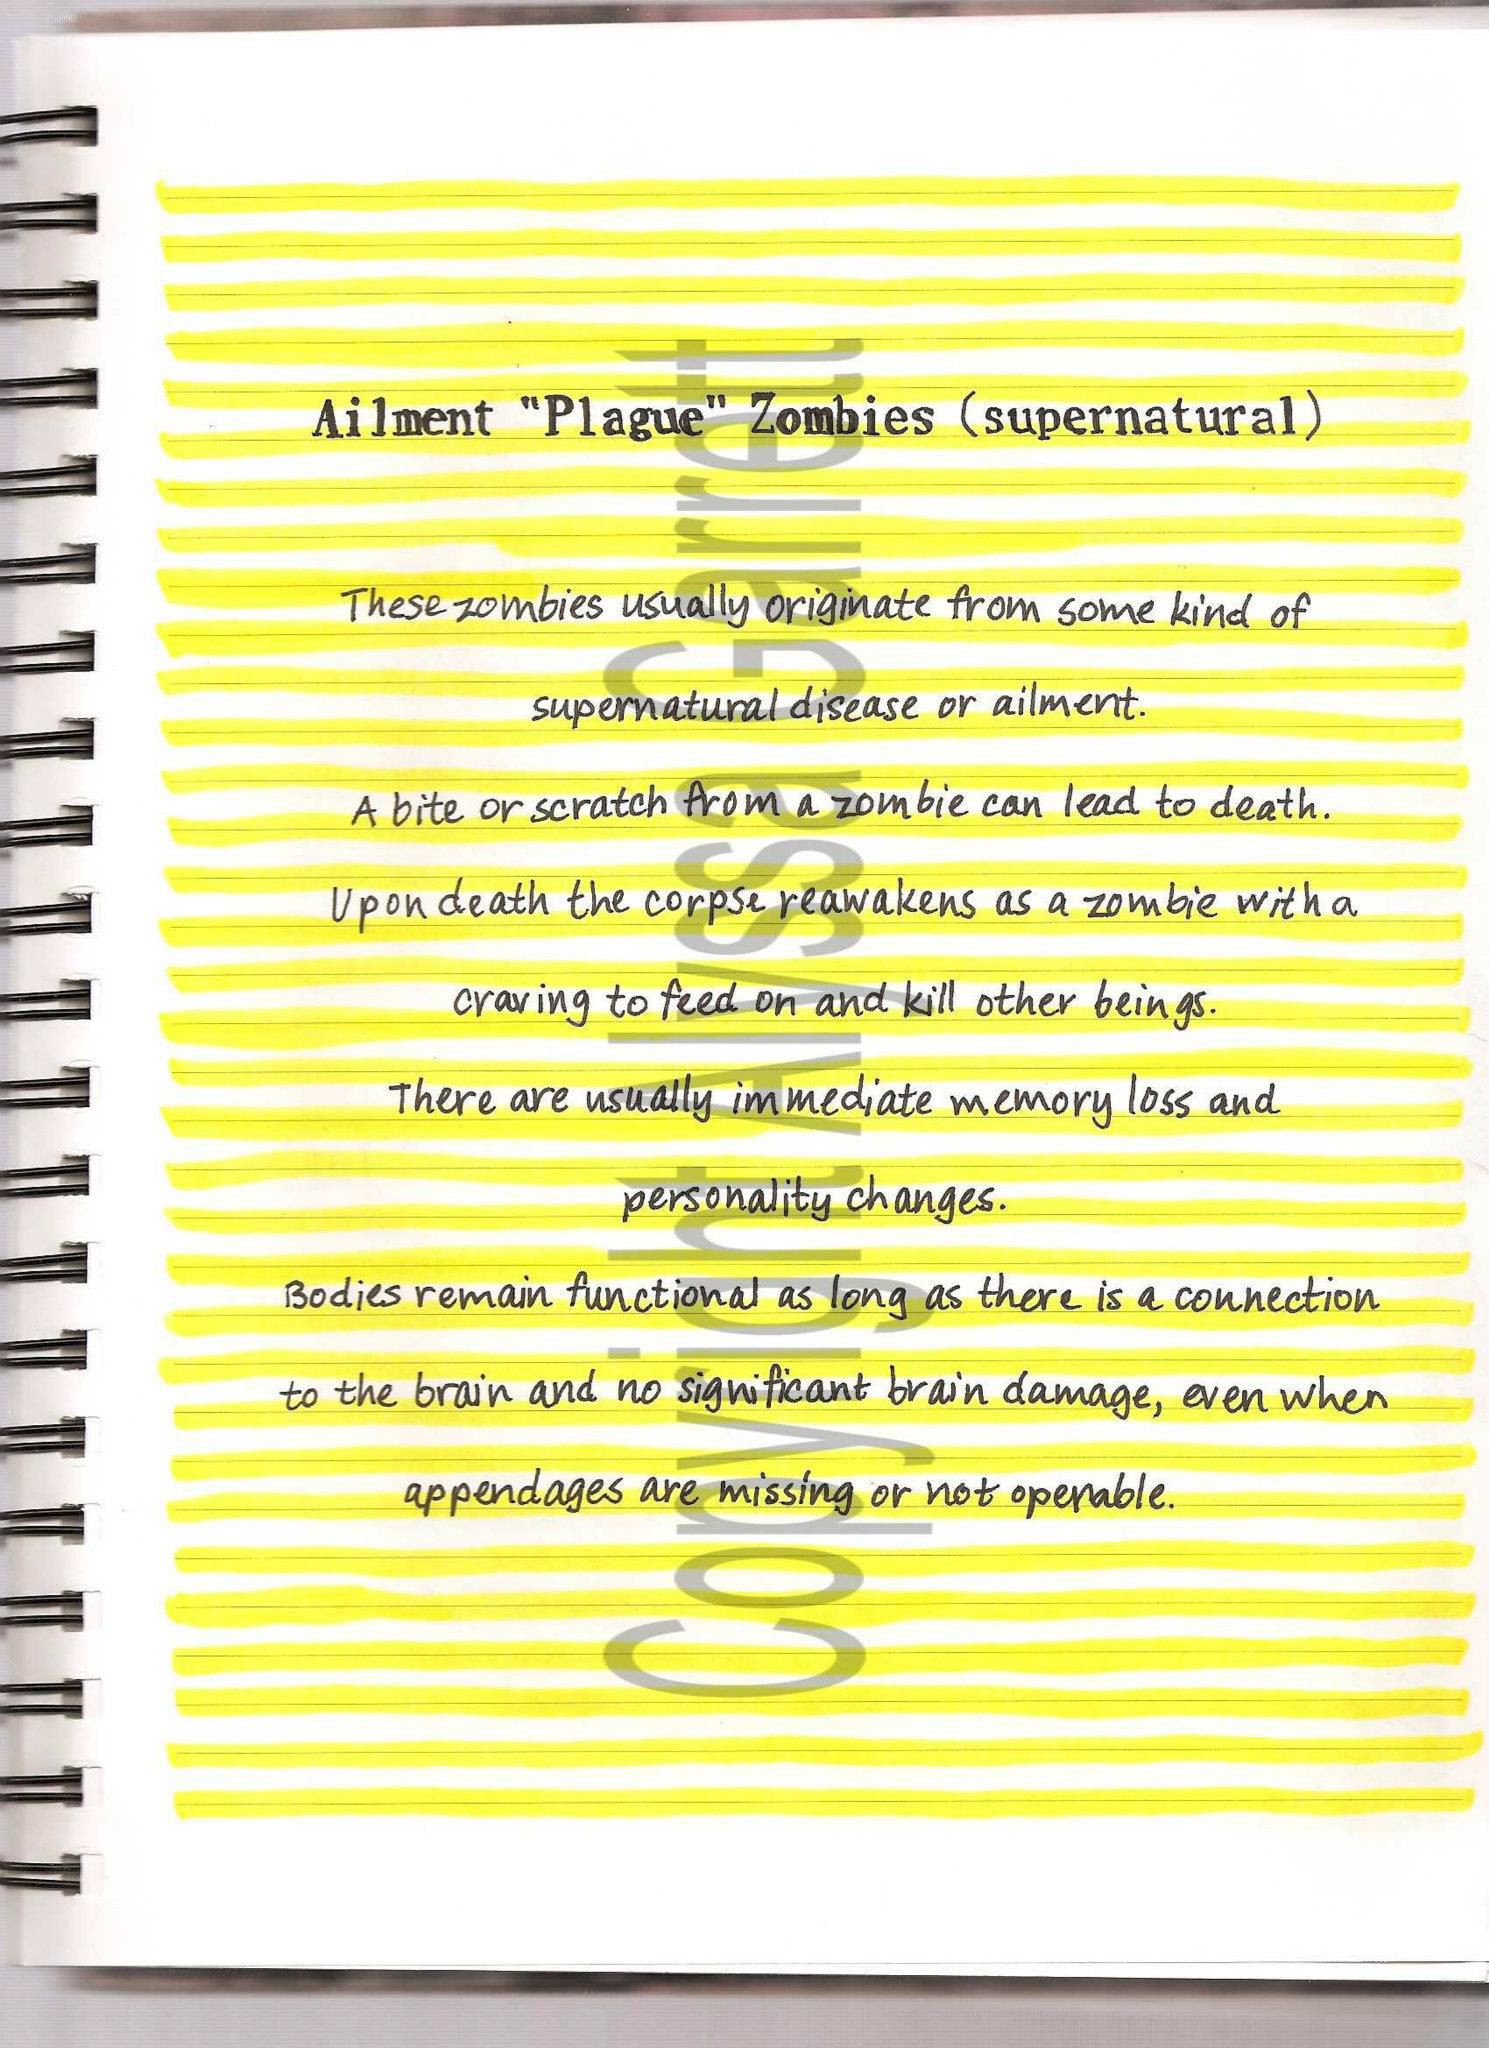 Ailment "Plague" Zombies (supernatural)
These zombies usually originate from some kind of
supernatural disease or ailment.
A bite or scratch from a zombie can lead to death.
Upon death the corpse reawakens as a zombie with a
craving to feed on and kill other beings.
There are usually immediate memory loss and
personality changes.
Bodies remain functional as long as there is a connection
to the brain and no significant brain damage, even when
appendages are missing or not openable.
Copyright Alysa Garrett